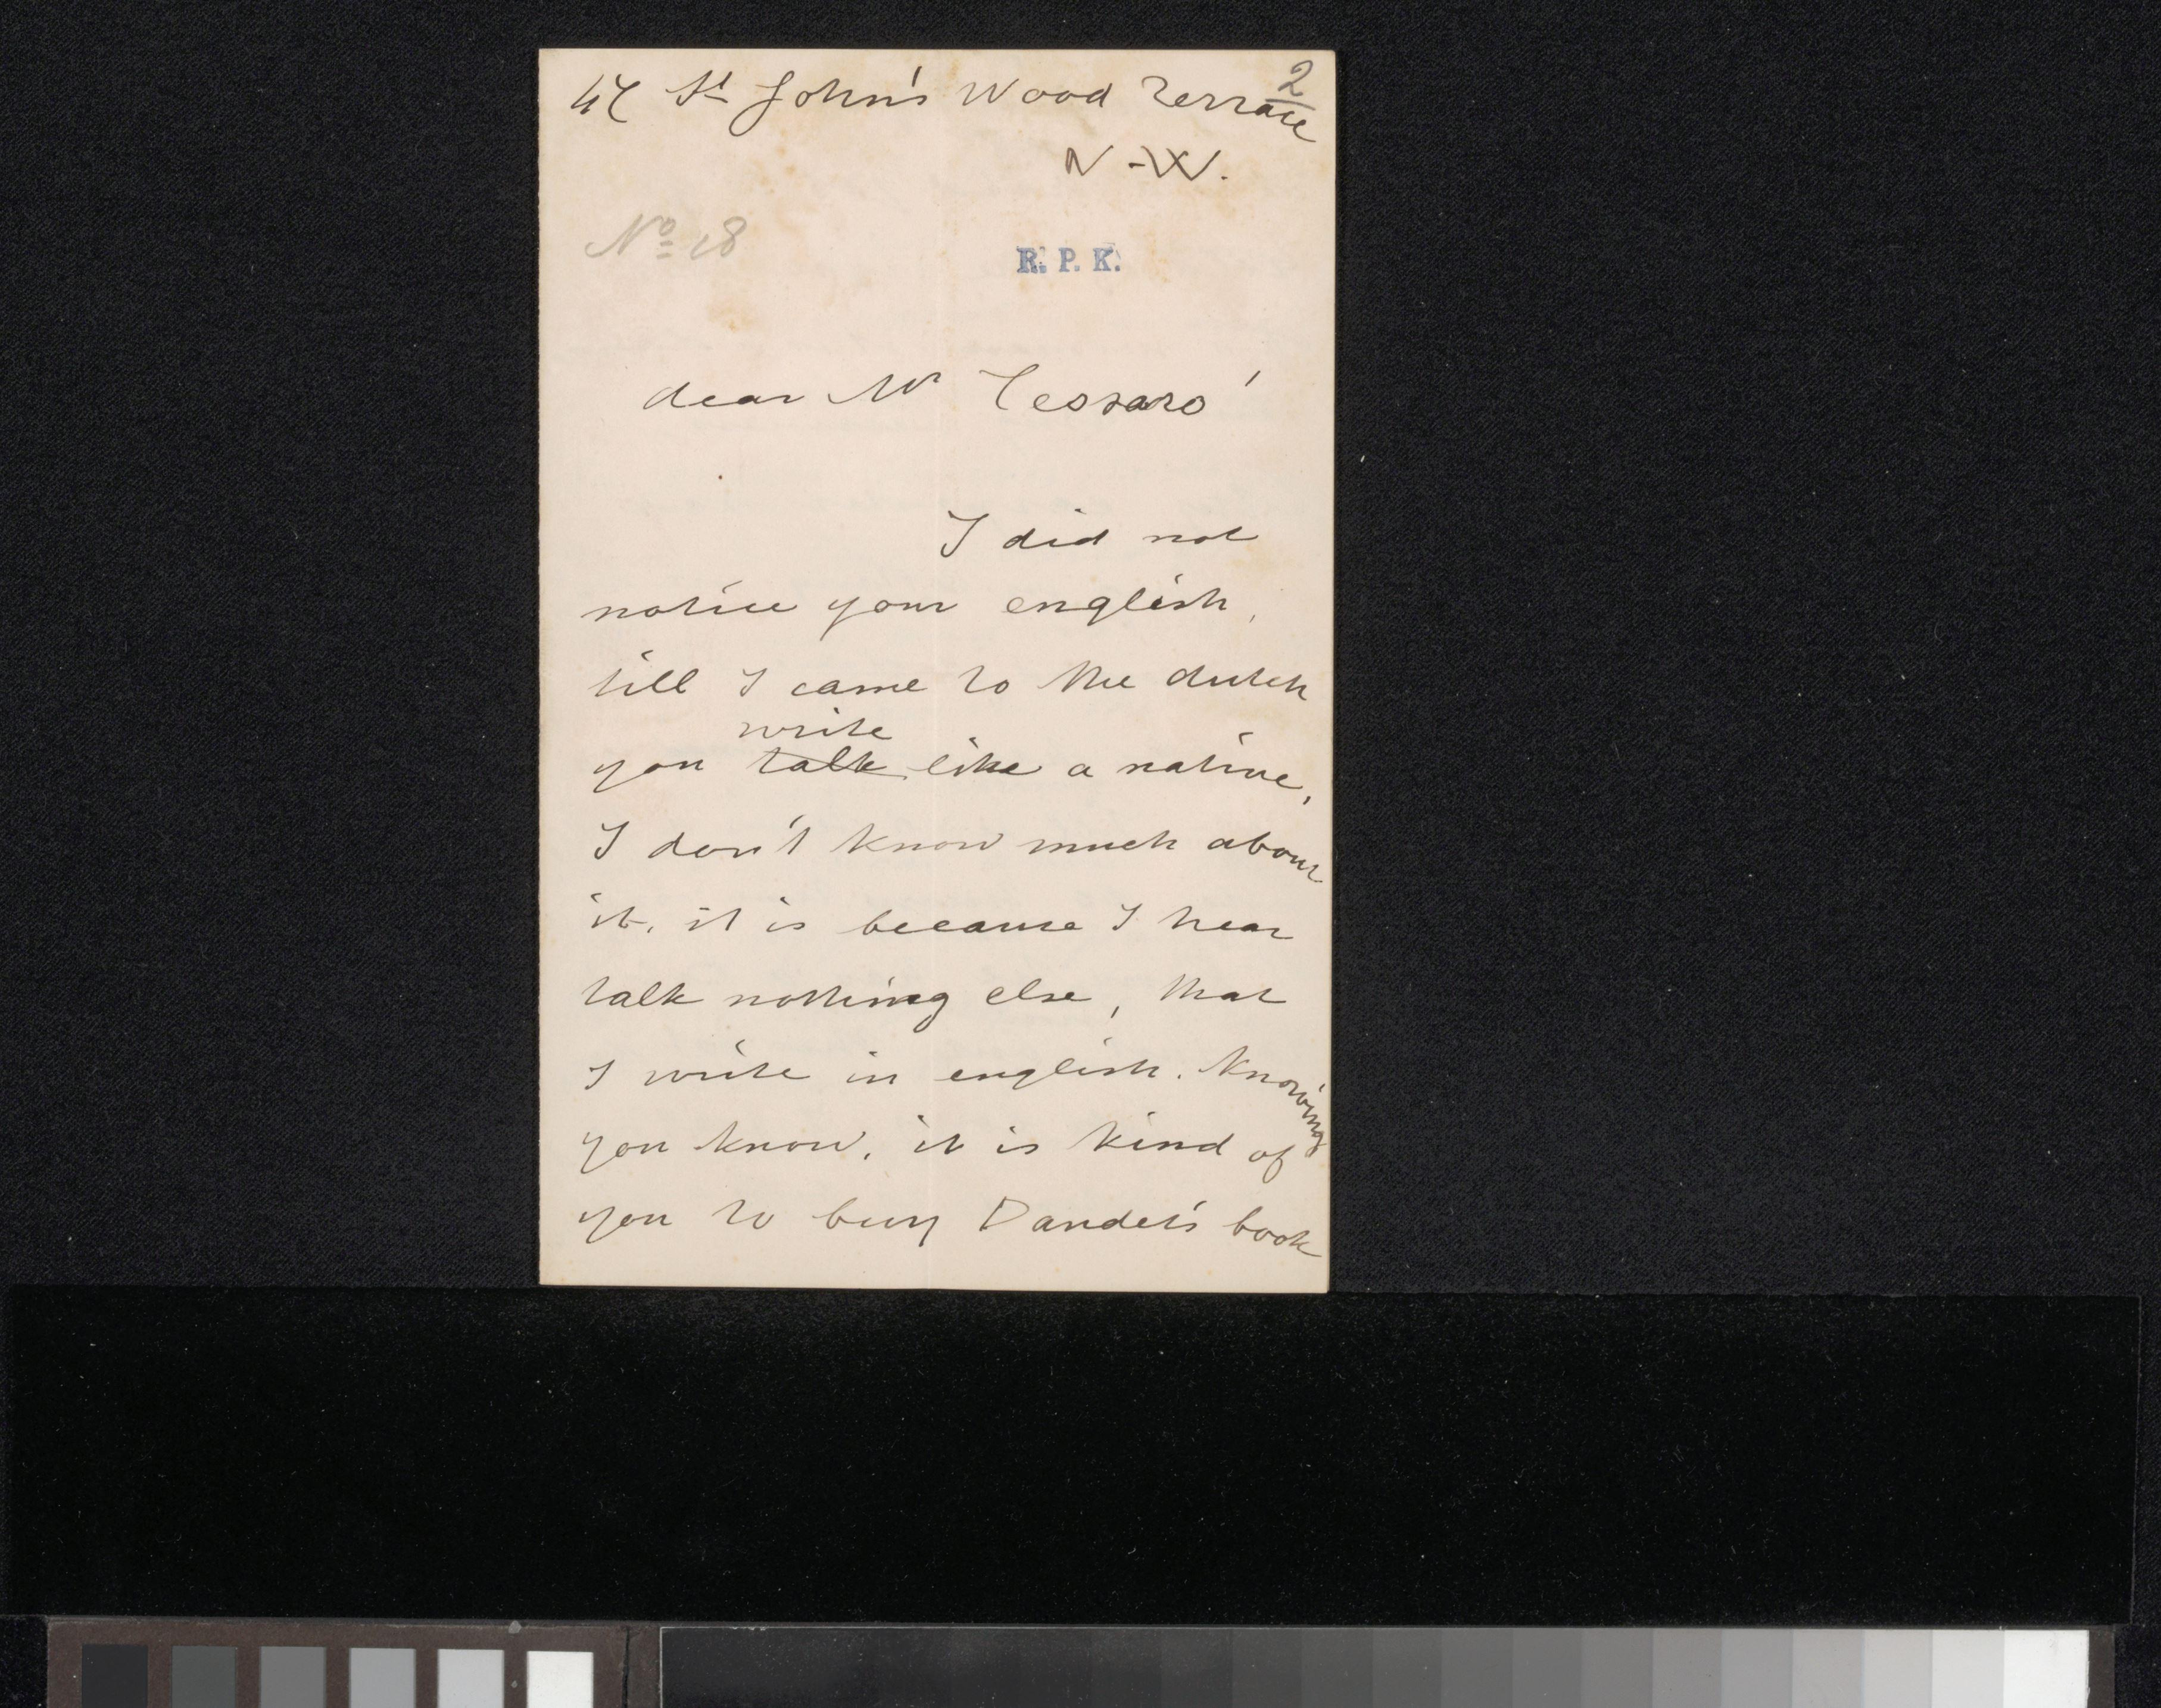 2
47 St John's Wood Terrace
N-W.
Nº 18
R. P. K.
dear Mr Tessaro'
I did not
notice your english,
till I came to the dutch
write
you talk like a native,
I don't know much about
it, it is because I hear
talk nothing else, that
I write in english. Knowing
you know, it is kind of
you to buy Daudet's book